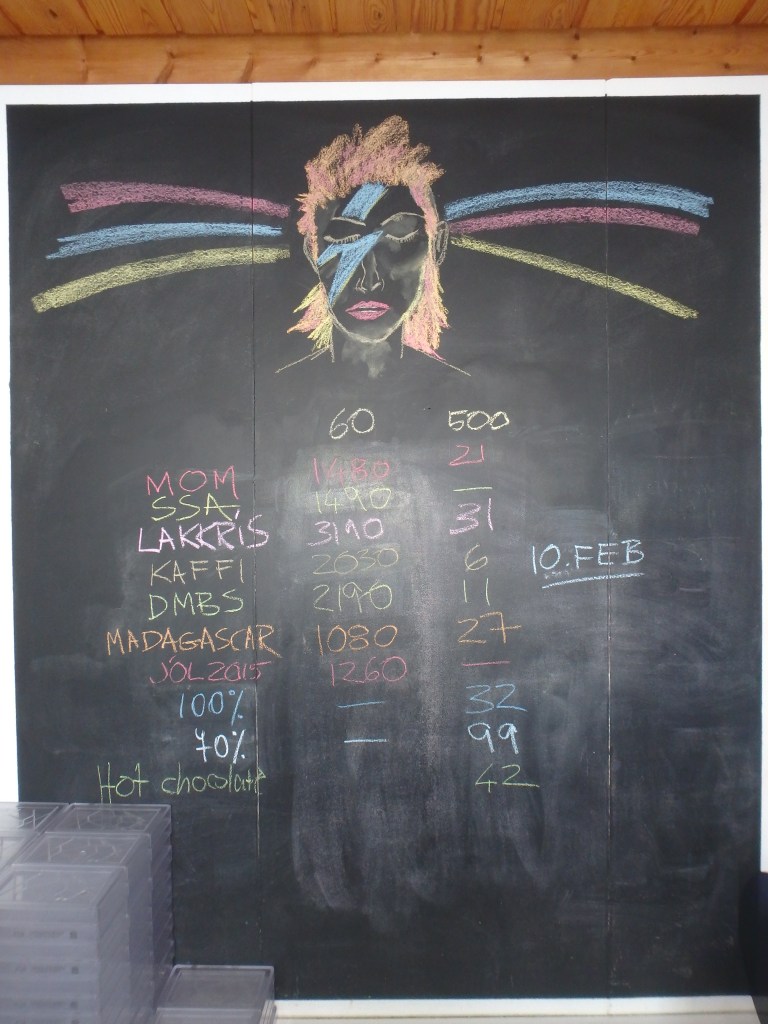 60 500
MOM 1480 21
SSA 1490 —
LAKKRÍS 3190 31
KAFFI 2030 6
DMBS 2190 11
MADAGASCAR 1080 27
JÓL 2015 1260 —
100% — 32
70% — 99
Hot chocolate 42
10. FEB